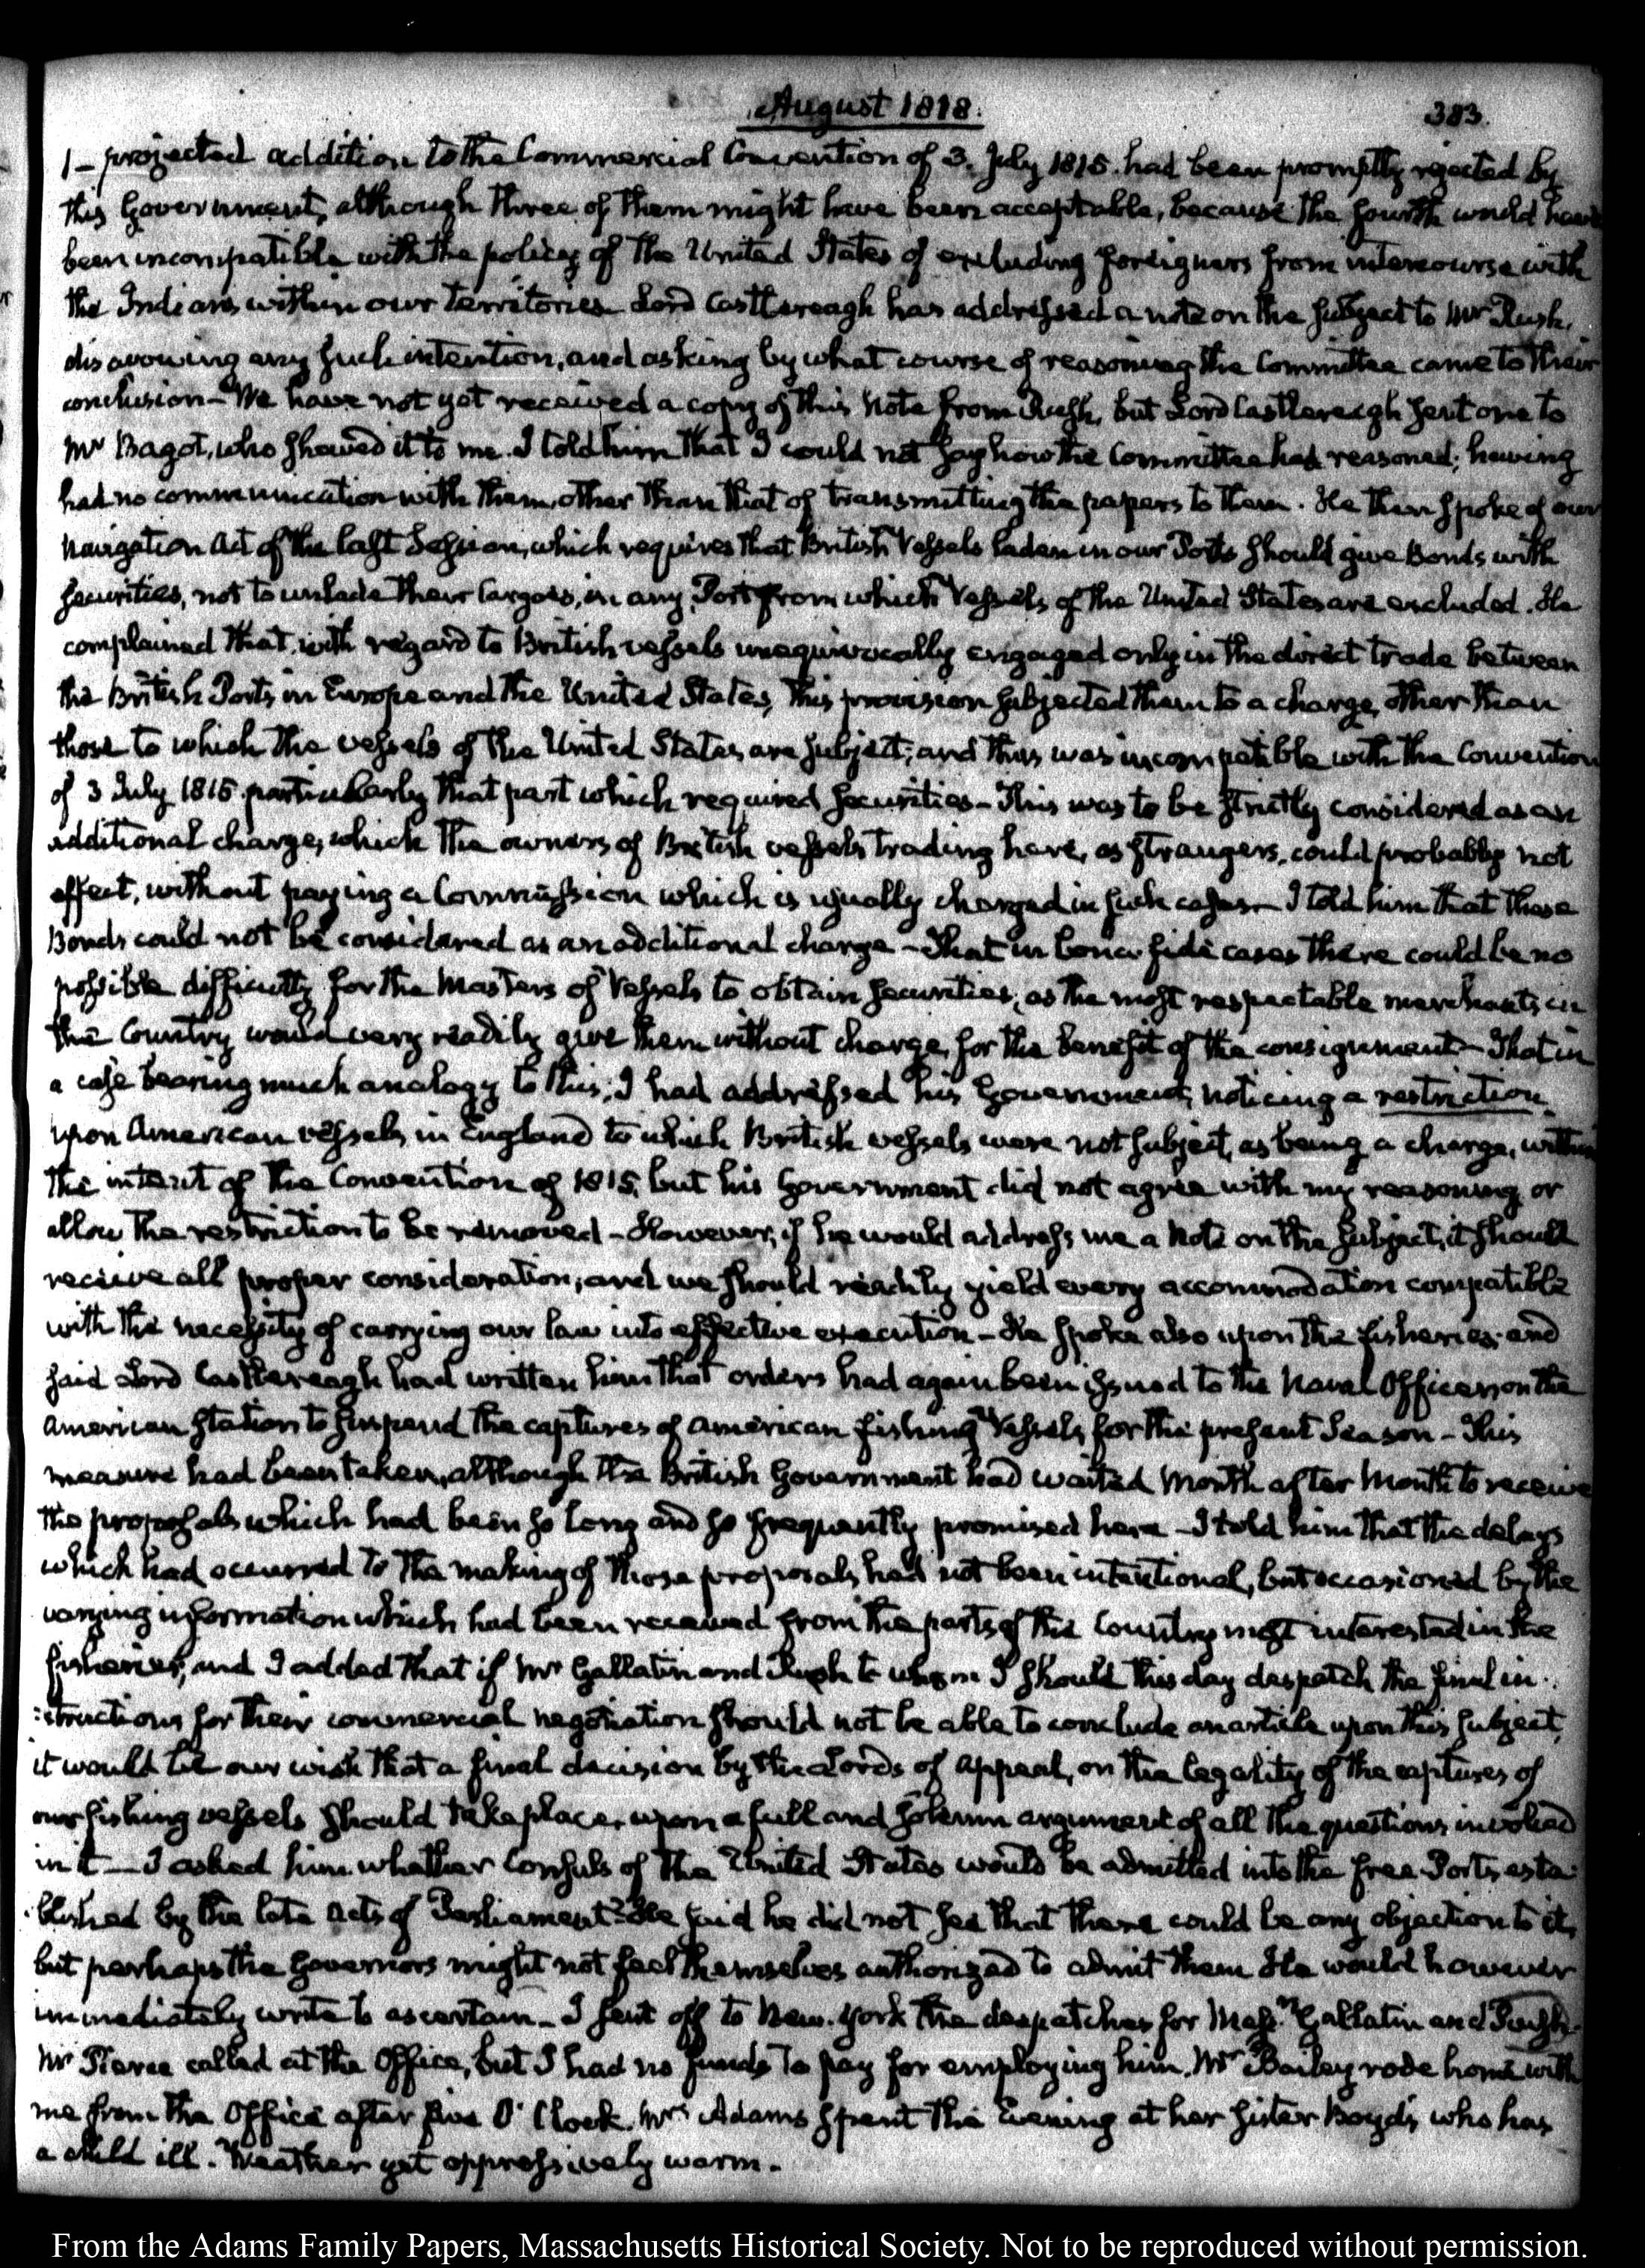 August 1818.
383.
1— projected addition to the Commercial Convention of 3. July 1815. had been promptly rejected by
this Government, although three of them might have been acceptable, because the fourth would have
been incompatible with the policy of the United States of excluding foreigners from intercourse with
the Indians within our territories. Lord Castlereagh has addressed a note on the subject to Mr Rush,
disavowing any such intention, and asking by what course of reasoning the Committee came to their
conclusion— We have not yet received a copy of this Note from Rush, but Lord Castlereagh sent one to
Mr Bagot, who shewed it to me. I told him that I could not say how the Committee had reasoned; having
had no communication with them, other than that of transmitting the papers to them. He then spoke of our
Navigation Act of the last Session, which requires that British Vessels laden in our Ports should give Bonds with
securities, not to unlade their Cargoes, in any Port from which Vessels of the United States are excluded. He
complained that with regard to British vessels unequivocally engaged only in the direct trade between
the British Ports in Europe and the United States, this provision subjected them to a charge, other than
those to which the vessels of the United States are subject; and thus was incompatible with the Convention
of 3 July 1815 particularly that part which required securities— This was to be strictly considered as an
additional charge, which the owners of British vessels trading here, as strangers, could probably not
effect, without paying a Commission which is usually charged in such cases— I told him that these
Bonds could not be considered as an additional charge— That in bona fide cases there could be no
possible difficulty for the Masters of Vessels to obtain securities, as the most respectable merchants in
this Country would very readily give them without charge, for the benefit of the consignment— That in
a case bearing much analogy to this, I had addressed his Government, noticing a restriction
upon American vessels in England to which British vessels were not subject, as being a charge, within
the intent of the Convention of 1815, but his Government did not agree with my reasoning or
allow the restriction to be removed— However, if he would address me a Note on the subject, it should
receive all proper consideration, and we should readily yield every accommodation compatible
with the necessity of carrying our law into effective execution— He spoke also upon the fisheries; and
said Lord Castlereagh had written him that orders had again been issued to the Naval Officers on the
American station to suspend the captures of American fishing Vessels, for the present Season— This
measure had been taken, although the British Government had waited Month after Month to receive
the proposals which had been so long and so frequently promised here— I told him that the delays
which had occurred to the making of those proposals, had not been intentional, but occasioned by the
varying information which had been received from the parts of this Country most interested in the
fisheries, and I added that if Mr Gallatin and Rush to whom I should this day despatch the final in-
:structions for their commercial negotiation should not be able to conclude an article upon this subject,
it would be our wish that a final decision by the Lords of Appeal, on the legality of the captures of
our fishing vessels should take place, upon a full and solemn argument of all the questions involved
in it— I asked him whether Consuls of the United States would be admitted into the free Ports esta-
:blished by the late Acts of Parliament? He said he did not see that there could be any objection to it,
but perhaps the Governors might not feel themselves authorized to admit them. He would however
immediately write to ascertain— I sent off to New-York the despatches for Messrs Gallatin and Rush.
Mr Pierce called at the Office, but I had no funds to pay for employing him. Mr Bailey rode home with
me from the Office after five O'Clock. Mrs Adams spent the Evening at her Sister Boyd's, who has
a child ill. Weather yet oppressively warm.
From the Adams Family Papers, Massachusetts Historical Society. Not to be reproduced without permission.